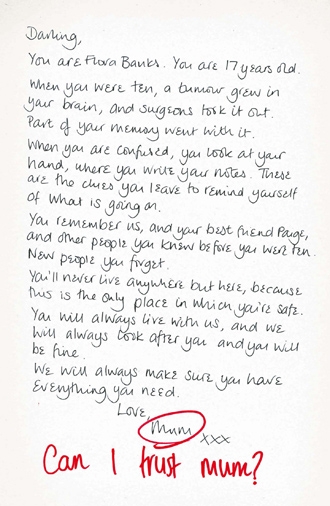 Darling,
You are Flora Banks. You are 17 years old.
When you were ten, a tumour grew in
your brain, and surgeons took it out.
Part of your memory went with it.
When you are confused, you look at your
hand, where you write your notes. These
are the clues you leave to remind yourself
of what is going on.
You remember us, and your best friend Paige,
and other people you knew before you were ten.
New people you forget.
You'll never live anywhere but here, because
this is the only place in which you're safe.
You will always live with us, and we
will always look after you and you will
be fine.
We will always make sure you have
everything you need.
Love,
Mum xxx
Can I trust mum?